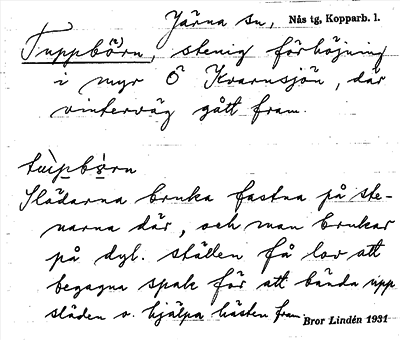 Järna sn, Nås tg, Kopparb. l.
Tuppbörn, stenig förhöjning
i myr Ö Kvarnsjön, där
vinterväg gått fram.
tùpbö̀rn
Slädarna bruka fastna på ste-
narna där, och man brukar
på dyl. ställen få lov att
begagna spak för att bända upp
släden o. hjälpa hästen fram.
Bror Lindén 1931